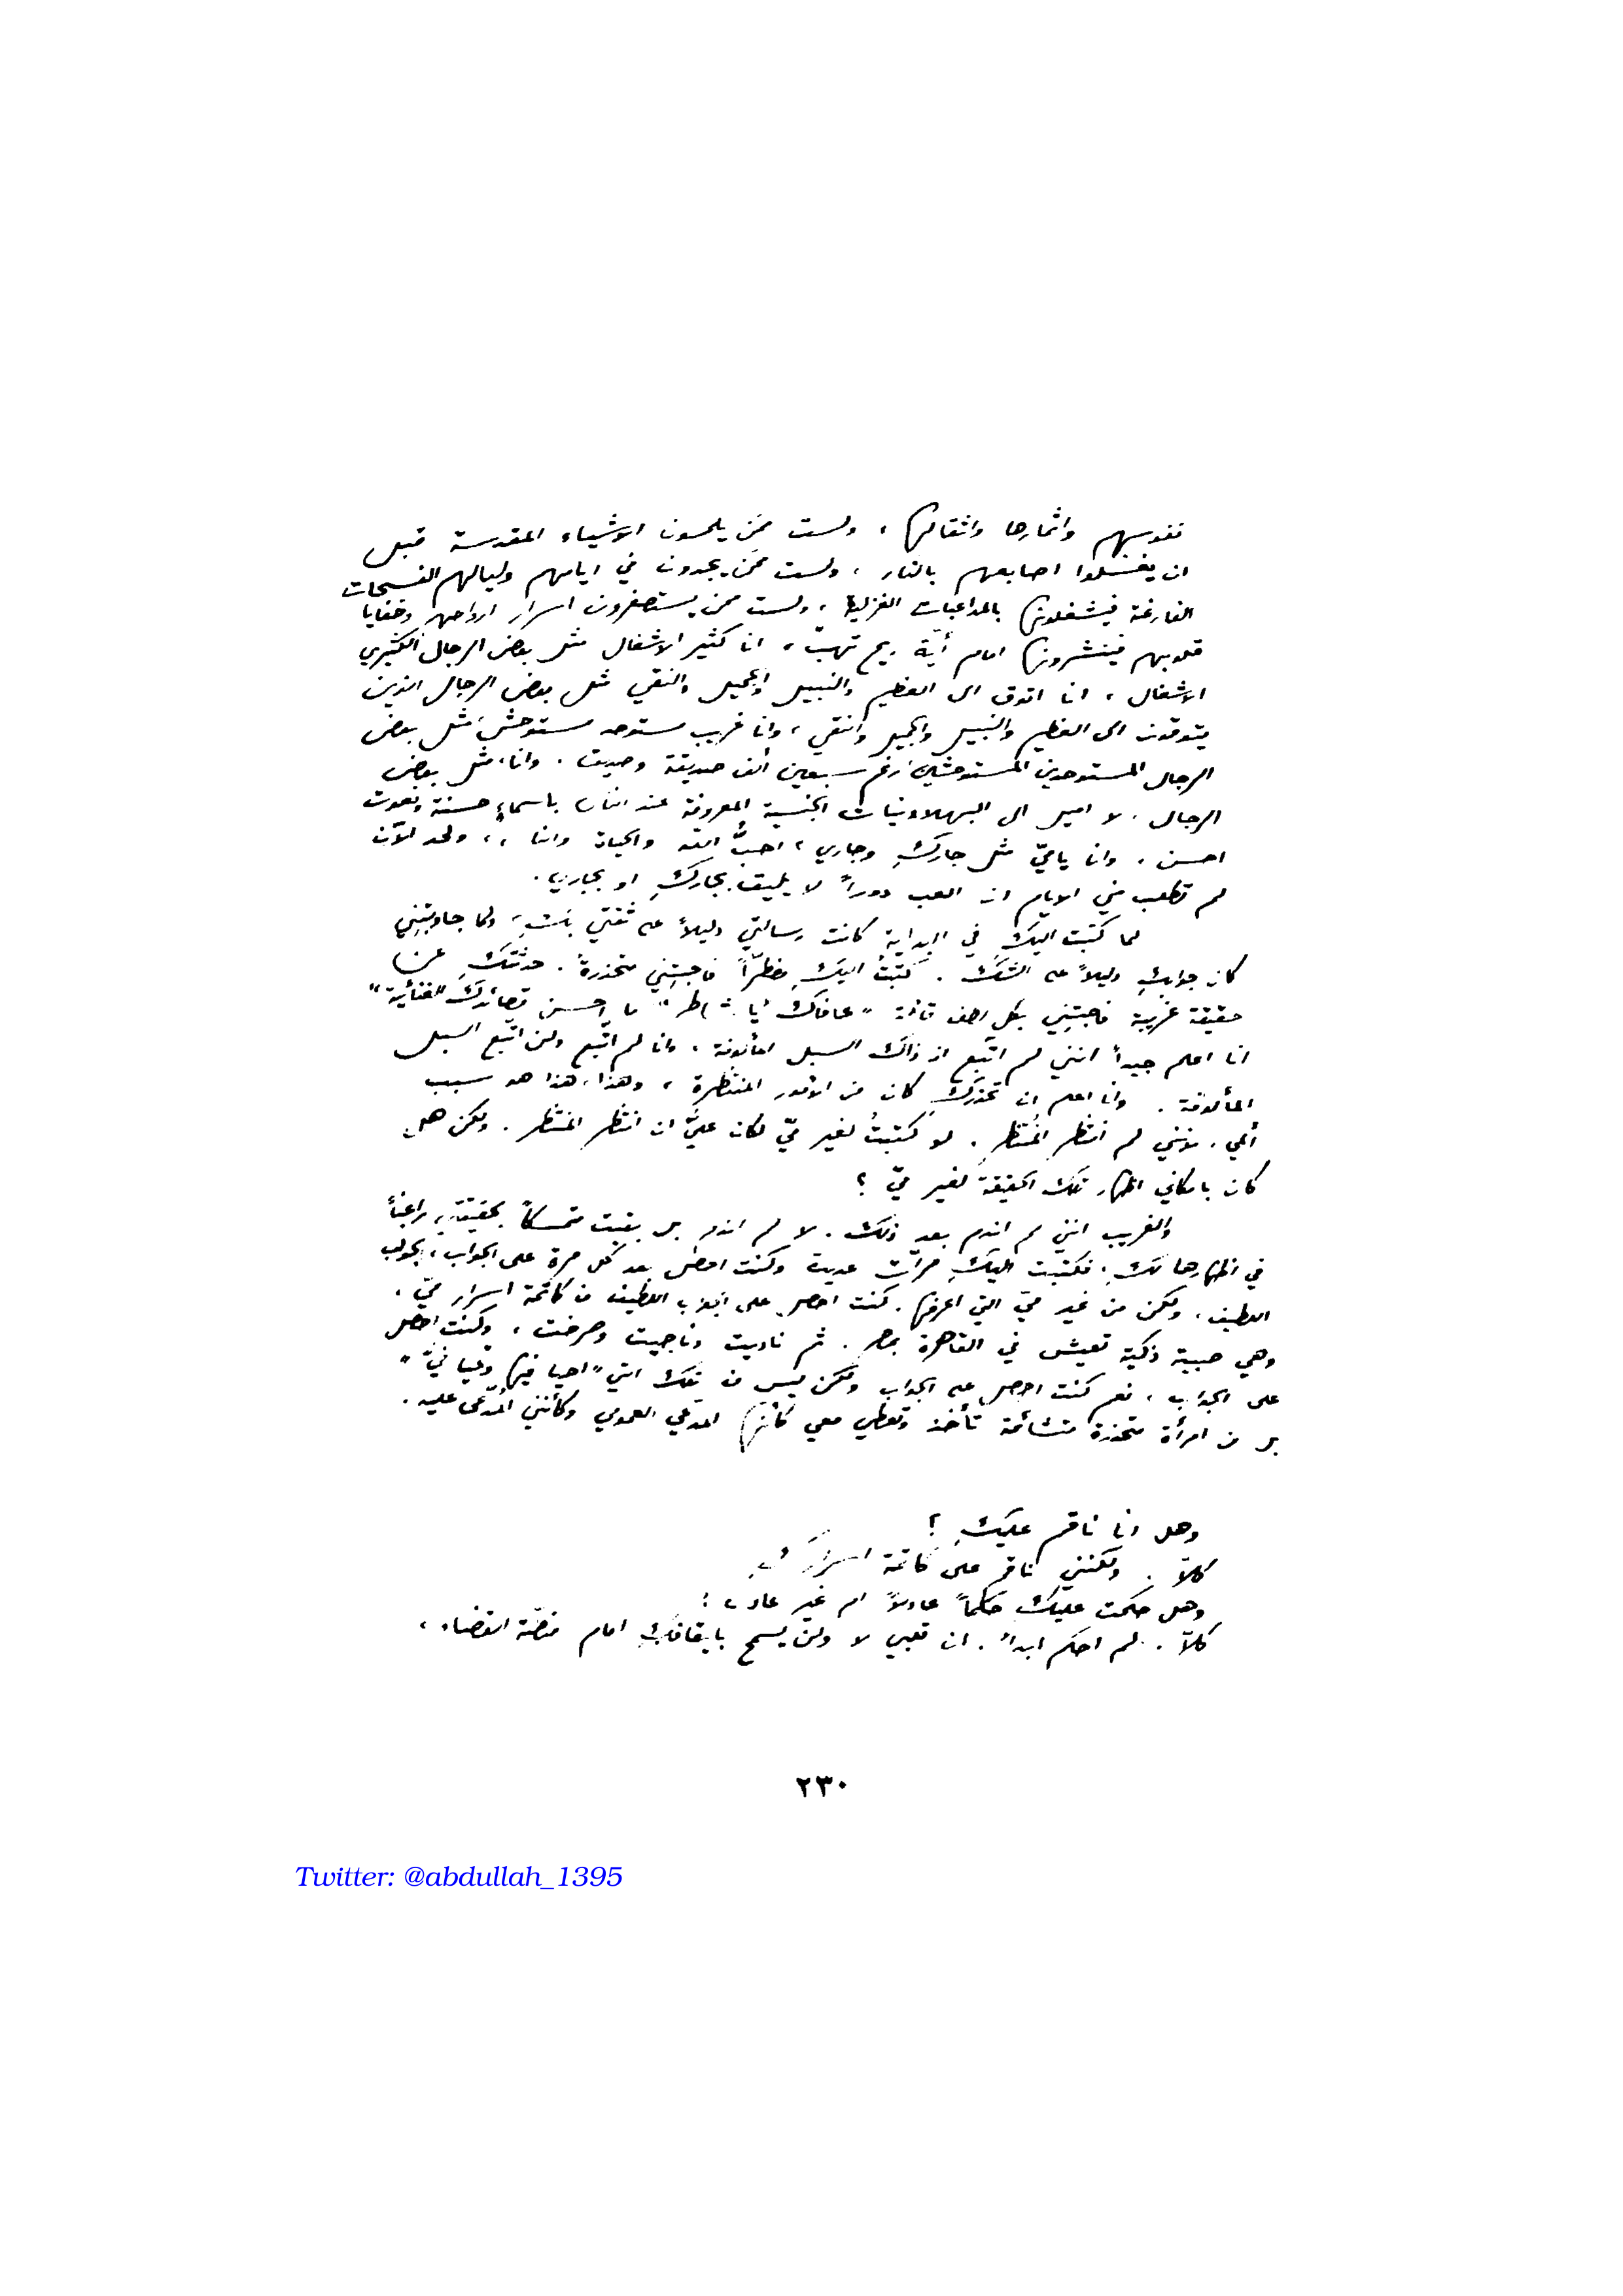 نفوسهم واثمارها واثقالها ، ولست ممَن يلمسون الاشياء المقدسة قبل
ان يغسلوا اصابعهم بالنار ، ولست ممَن يجدون في ايامهم ولياليهم الفسحات
الفارغة فيشغلونها بالمداعبات الغزلية ، ولست ممن يستصغرون اسرار ارواحهم وخفايا
قلوبهم فينشرونها امام أيّة ريح تهبّ ، انا كثير الاشغال مثل بعض الرجال الكثيري
الاشغال ، انا اتوق الى العظيم والنبيل والجميل والنقي مثل بعض الرجال الذين
يتوقون الى العظيم والنبيل والجميل والنقي ، وانا غريب مستوحد مستوحش ، مثل بعض
الرجال المستوحدين المستوحشين رغم سبعين ألف صديقة وصديق . وانا ، مثل بعض
الرجال . لا اميل الى البهلوانيات الجنسية المعروفة عند الناس باسماءٍ حسنة ونعوت
احسن . وانا يا ميّ مثل جاركِ وجاري ، احبُّ الله والحياة والناس ، ولحد الآن
لم تطلب مني الايام ان العب دوراً لا يليق بجاركِ او بجاري .
لما كتبت اليكِ في البداية كانت رسالتي دليلاً على ثقتي بكِ ، ولما جاوبتِني
كان جوابكِ دليلاً على الشك . كتبتُ اليكِ مضطرّاً فاجبتِني متحذرة . حدثتكِ عن
حقيقة غريبة فاجبتِني بكل لطف قائلة "عافاك يا شاطر" ما احسن قصائدك الغنائية"
انا اعلم جيداً انني لم اتّبع اذ ذاك السبل المألوفة ، وانا لم اتّبع ولن اتّبع السبل
المألوفة . وانا اعلم ان تحذركِ كان من الأمور المنتظرة ، وهذا ، هذا هو سبب
ألمي . لأنني لم انتظر المُنتظر . لو كتبتُ لغير ميّ لكان عليَّ ان انتظر المنتظر . ولكن هل
كان بامكاني اظهار تلك الحقيقة لغير ميّ ؟
والغريب انني لم اندم بعد ذلك . لا لم اندم بل بقيت متمسكاً بحقيقتي راغباً
في اظهارها لكِ . فكتبت اليكِ مرّات عديدة وكنت احصل بعد كل مرة على الجواب ، الجواب
اللطيف ، ولكن من غير ميّ التي اعرفها . كنت احصل على الجواب اللطيف من كاتمة اسرار ميّ .
وهي صبية ذكية تعيش في القاهرة بمصر . ثم ناديت وناجيت وصرخت ، وكنت احصل
على الجواب ، نعم كنت احصل على الجواب ولكن ليس من تلك التي "احيا فيها وتحيا فيّ"
بل من امرأة متحذرة متشائمة تأخذ وتعطي معي كأنها المدعي العمومي وكأنني المدّعى عليه .
وهل انا ناقم عليكِ ؟
كلاّ . ولكنني ناقم على كاتمة اسراركِ .
وهل حكمت عليك حكماً عادلاً ام غير عادل ؟
كلاّ . لم احكم ابداً . ان قلبي لا ولن يسمح بايقافكِ امام منصّة القضاء ،
٢٣٠
Twitter: @abdullah_1395